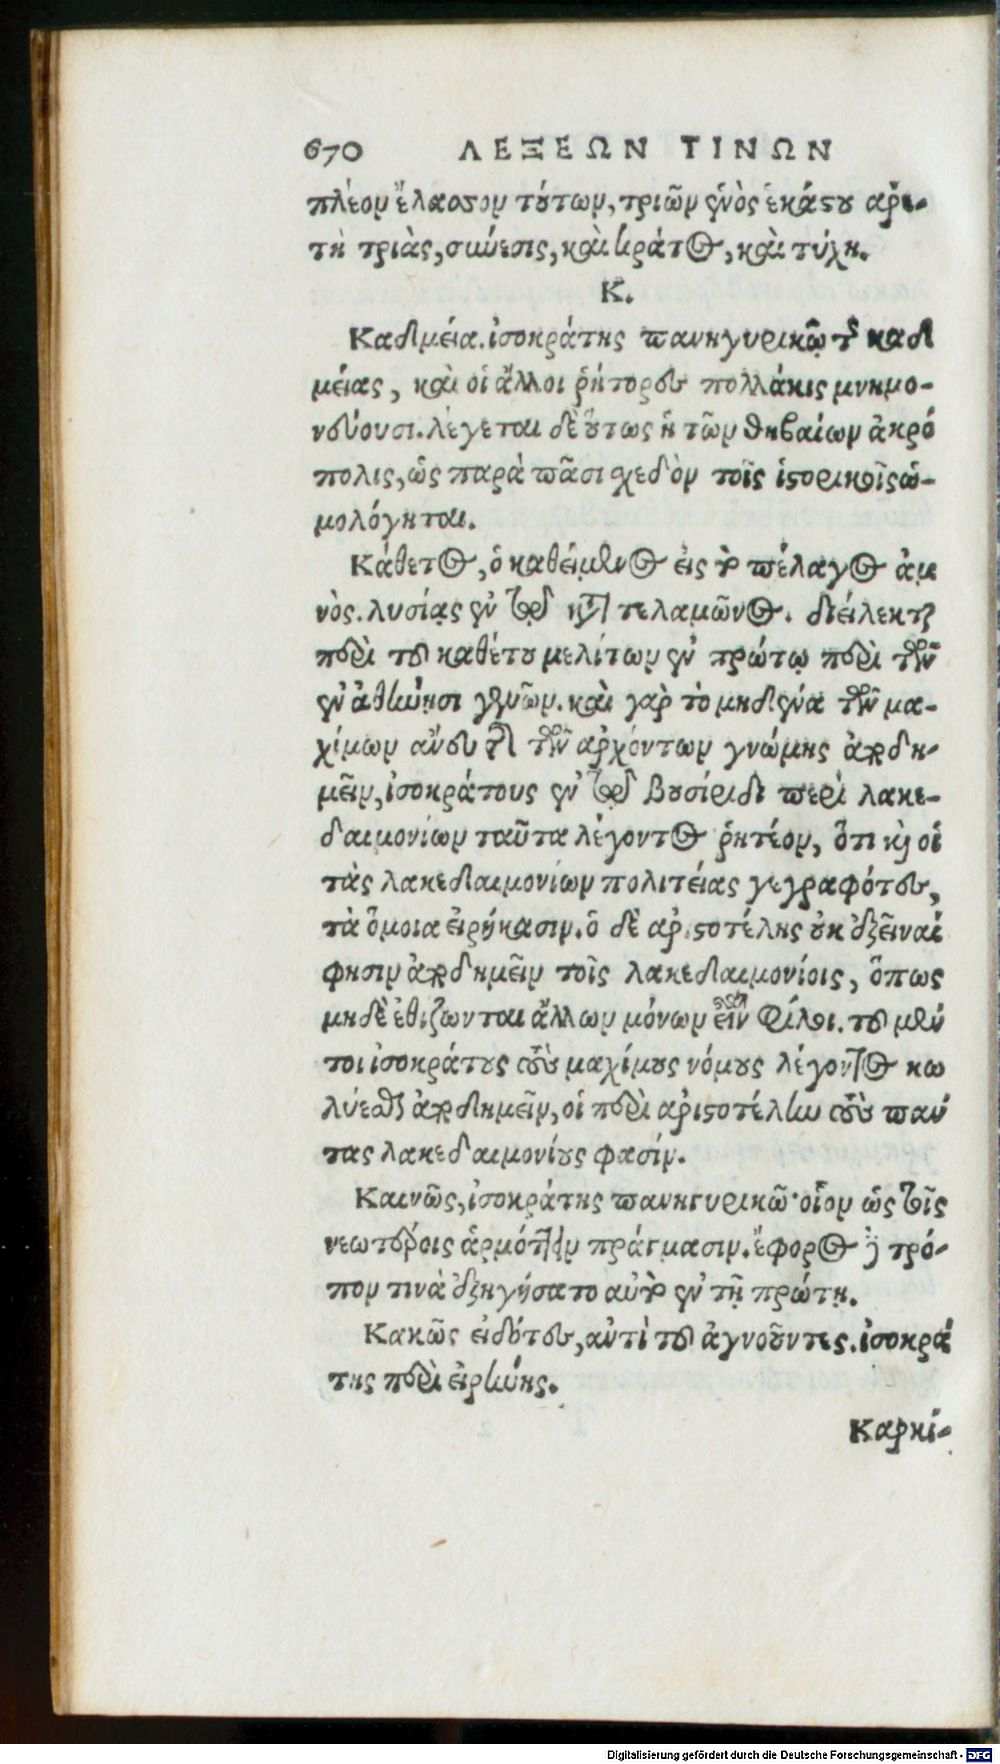 670 ΛΕΞΕΩΝ ΤΙΝΩΝ
πλέον ἔλασσον τούτων, τριῶν ἑνὸς ἑκάστου ἀρε-
τὴ τριὰς, σύνεσις, καὶ κράτος, καὶ τύχη.
Κ.
Καδμεία. ἰσοκράτης πανηγυρικῷ τῆς καδ
μείας, καὶ οἱ ἄλλοι ῥήτορες πολλάκις μνημο-
νεύουσι. λέγεται δὲ οὕτως ἡ τῶν θηβαίων ἀκρό
πολις, ὡς παρὰ πᾶσι σχεδὸν τοῖς ἱστορικοῖς ὡ-
μολόγηται.
Κάθετος, ὁ καθειμένος εἰς τὸ πέλαγος ἀμ
νὸς. λυσίας ἐν τῷ κατὰ τελαμῶνος. διείλεκται
περὶ τοῦ καθέτου μελίτων ἐν πρώτῳ περὶ τῶν
ἐν ἀθήνῃσι γενῶν. καὶ γὰρ τὸ μηδένα τῶν μα-
χίμων ἄνευ τῆς τῶν ἀρχόντων γνώμης ἀποδη-
μεῖν, ἰσοκράτους ἐν τῷ βουσίριδι περὶ λακε-
δαιμονίων ταῦτα λέγοντος ῥητέον, ὅτι καὶ οἱ
τὰς λακεδαιμονίων πολιτείας γεγραφότες,
τὰ ὅμοια εἰρήκασιν. ὁ δὲ ἀριστοτέλης οὐκ ἐξεῖναί
φησιν ἀποδημεῖν τοῖς λακεδαιμονίοις, ὅπως
μηδὲ ἐθίζωνται ἄλλων μόνων εἶναι φίλοι. τοῦ μέν
τοι ἰσοκράτους τοὺς μαχίμους νόμους λέγοντος κω
λύεσθαι ἀποδημεῖν, οἱ περὶ ἀριστοτέλην τοὺς πάν
τας λακεδαιμονίους φασίν.
Καινῶς, ἰσοκράτης πανηγυρικῷ· οἷον ὡς τοῖς
νεωτέροις ἁρμόττειν πράγμασιν. ἔφορος δὲ τρό-
πον τινὰ ἐξηγήσατο αὐτὸ ἐν τῇ πρώτῃ.
Κακῶς εἰδότες, ἀντὶ τοῦ ἀγνοοῦντες. ἰσοκρά
της περὶ εἰρήνης.
Καρκί-
Digitalisierung gefördert durch die Deutsche Forschungsgemeinschaft - DFG